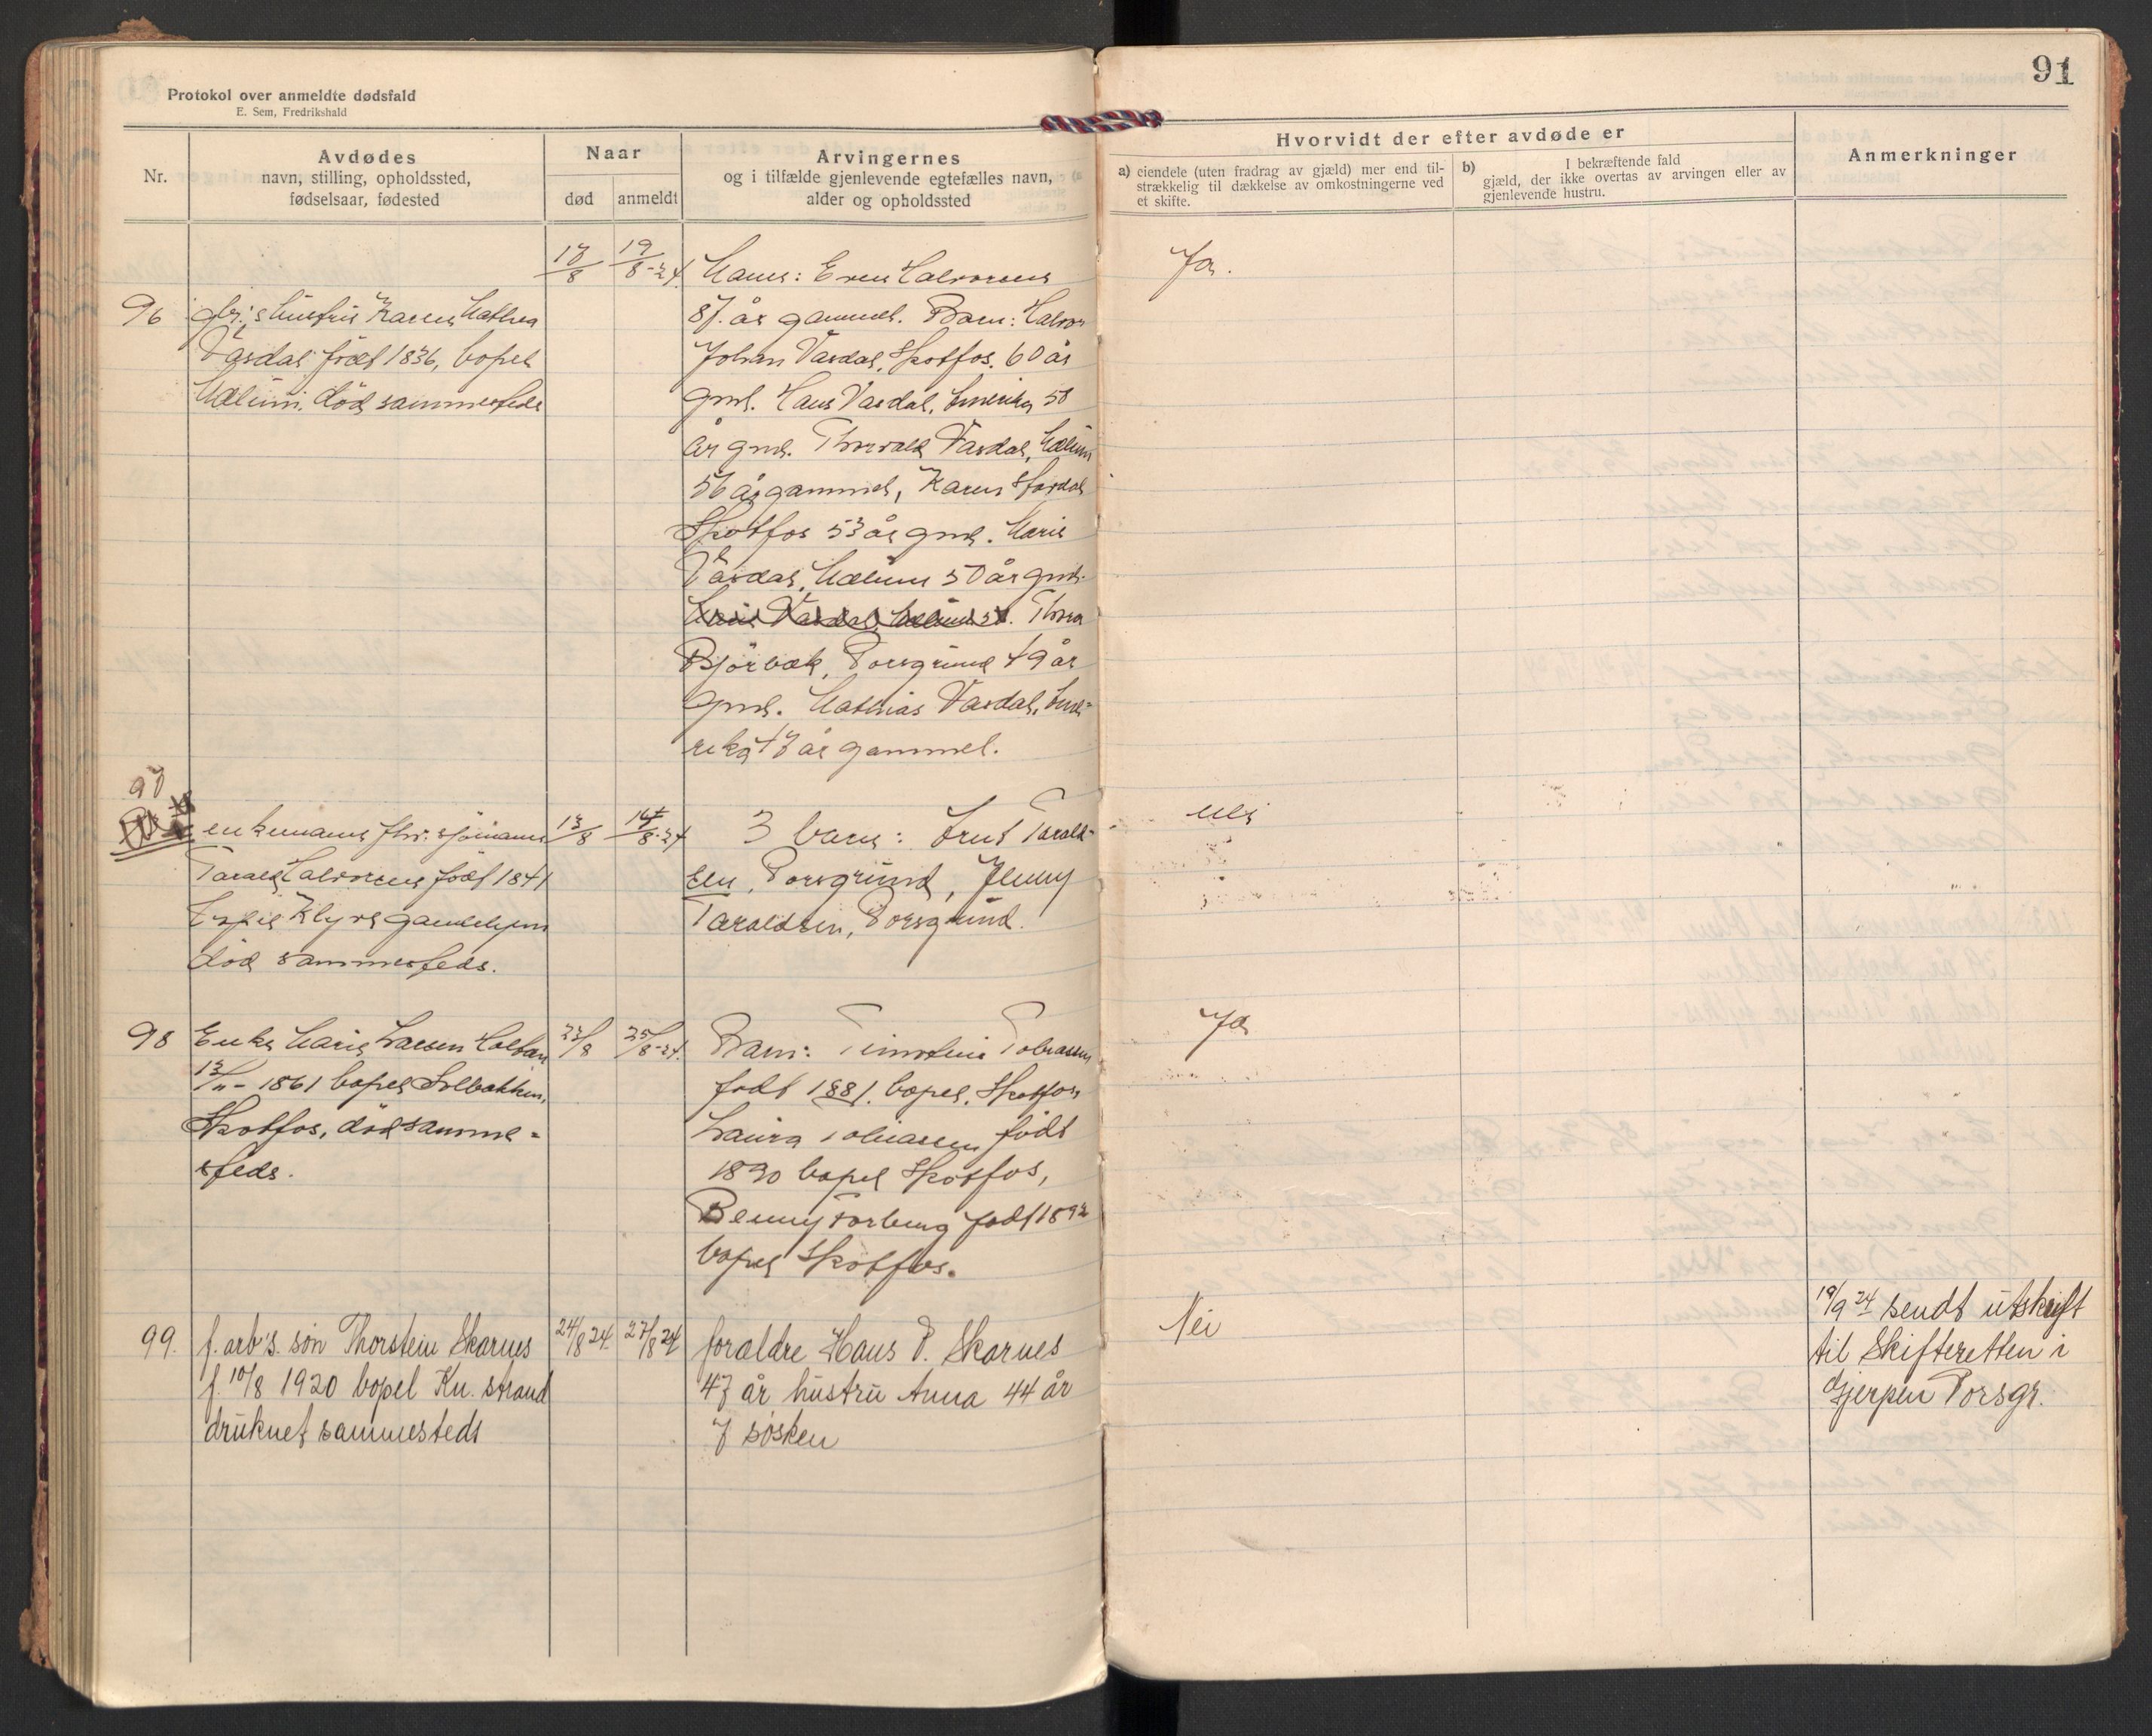 91
Protokol over anmeldte dødsfald
E. Sem, Fredrikshald
Nr.
Avdødes
navn, stilling, opholdssted,
fødselsaar, fødested
Naar
død
anmeldt
Arvingernes
og i tilfælde gjenlevende egtefælles navn,
alder og opholdssted
Hvorvidt der efter avdøde er
a) eiendele (uten fradrag av gjæld) mer end til-
strækkelig til dækkelse av omkostningerne ved
et skifte.
b) I bekræftende fald
gjæld, der ikke overtas av arvingen eller av
gjenlevende hustru.
Anmerkninger
96
hustru Karen Mathea
Vasdal født 1836, bopel
Mælum, død sammesteds
17/8
19/8-24.
Mann: Even Halvorsen
87. år gammel. Barn: Halvor
Johan Vasdal, Skotfos. 60 år
gml. Hans Vasdal, Amerika 58
år gml. Thorvald Vasdal, Mælum
56 år gammel, Karen
Skotfos 53 år gml. Marie
Vasdal, Mælum 50 år gml.
Marie Vasdal, Mælum 50. Thora
Bjørbæk, Porsgrund 49 år
gml. Mathias Vasdal, Ame-
rika 47 år gammel.
Ja.
97
enkemann fhv. sjømann
Tarald Halvorsen født 1841
Klyve gamlehjem
død sammesteds.
13/8
14/8-24
3 barn: Knut Tarald-
sen, Porsgrund, Jenny
Taraldsen, Porsgrund.
nei
98
Enke Marie Larsen Holtan
13/11-1861 bopel Solbakken,
Skotfos, død samme-
steds.
23/8
25/8-24.
Barn: Timoteus Tobiassen
født 1881. bopel. Skotfos
Laura Tobiassen født
1890 bopel Skotfos,
Benny Torberg født 1892
bopel Skotfos.
Ja
99.
f. arb's. søn Thorstein Skarnes
f. 10/8 1920 bopel Kn. strand
druknet sammesteds
24/8 24.
27/8 24
foræ­ldre Hans P. Skarnes
47 år hustru Anna 44 år
7 søsken
Nei
19/9 24 sendt utskrift
til Skifteretten i
Gjerpen Porsgr.